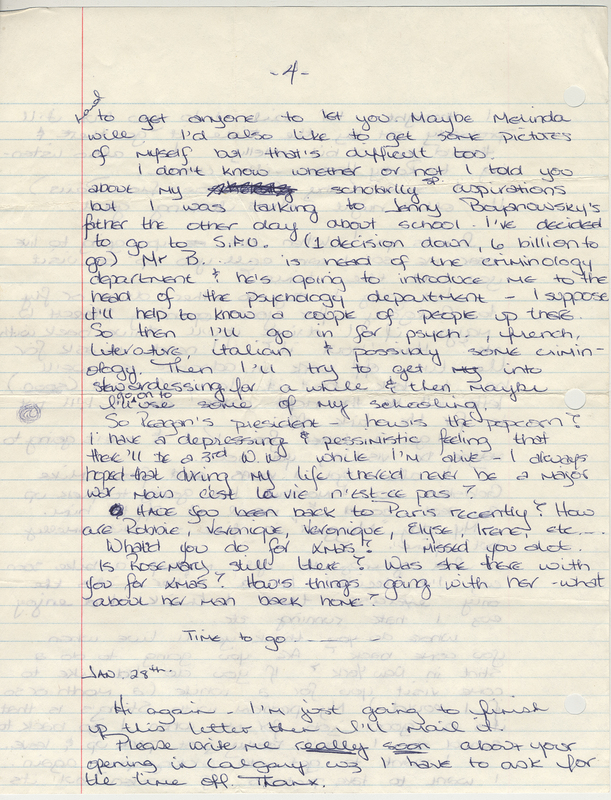 -4-
hard
to get anyone to let you Maybe Melinda
will. I'd also like to get some pictures
of myself but that's difficult too.
I don't know whether or not I told you
about my scholarilly sp aspirations
but I was talking to Jenny Boyanowsky's
father the other day about school. I've decided
to go to S.F.U. (1 decision down, 6 billion to
go) Mr B... is head of the criminology
department & he's going to introduce me to the
head of the psychology department - I suppose
it'll help to know a couple of people up there.
So then I'll go in for psych., french,
literature, italian & possibly some crimin-
ology. Then I'll try to get into
stewardessing for a while & then maybe
go on to
use some of my schooling.
So Reagan's president - how's the popcorn?
I have a depressing & pessimistic feeling that
there'll be a 3rd W.W. while I'm alive - I always
hoped that during my life there'd never be a major
war. Mais c'est la vie n'est-ce pas?
Have you been back to Paris recently? How
are Robbie, Veronique, Veronique, Elyse, Irene, etc...
What'd you do for Xmas? I missed you alot.
Is Rosemary still there? Was she there with
you for xmas? How's things going with her - what
about her man back home?
Time to go - - - -
Jan. 28th.
Hi again - I'm just going to finish
up this letter then I'll mail it.
Please write me really soon about your
opening in Calgary cuz I have to ask for
the time off. Thanx.